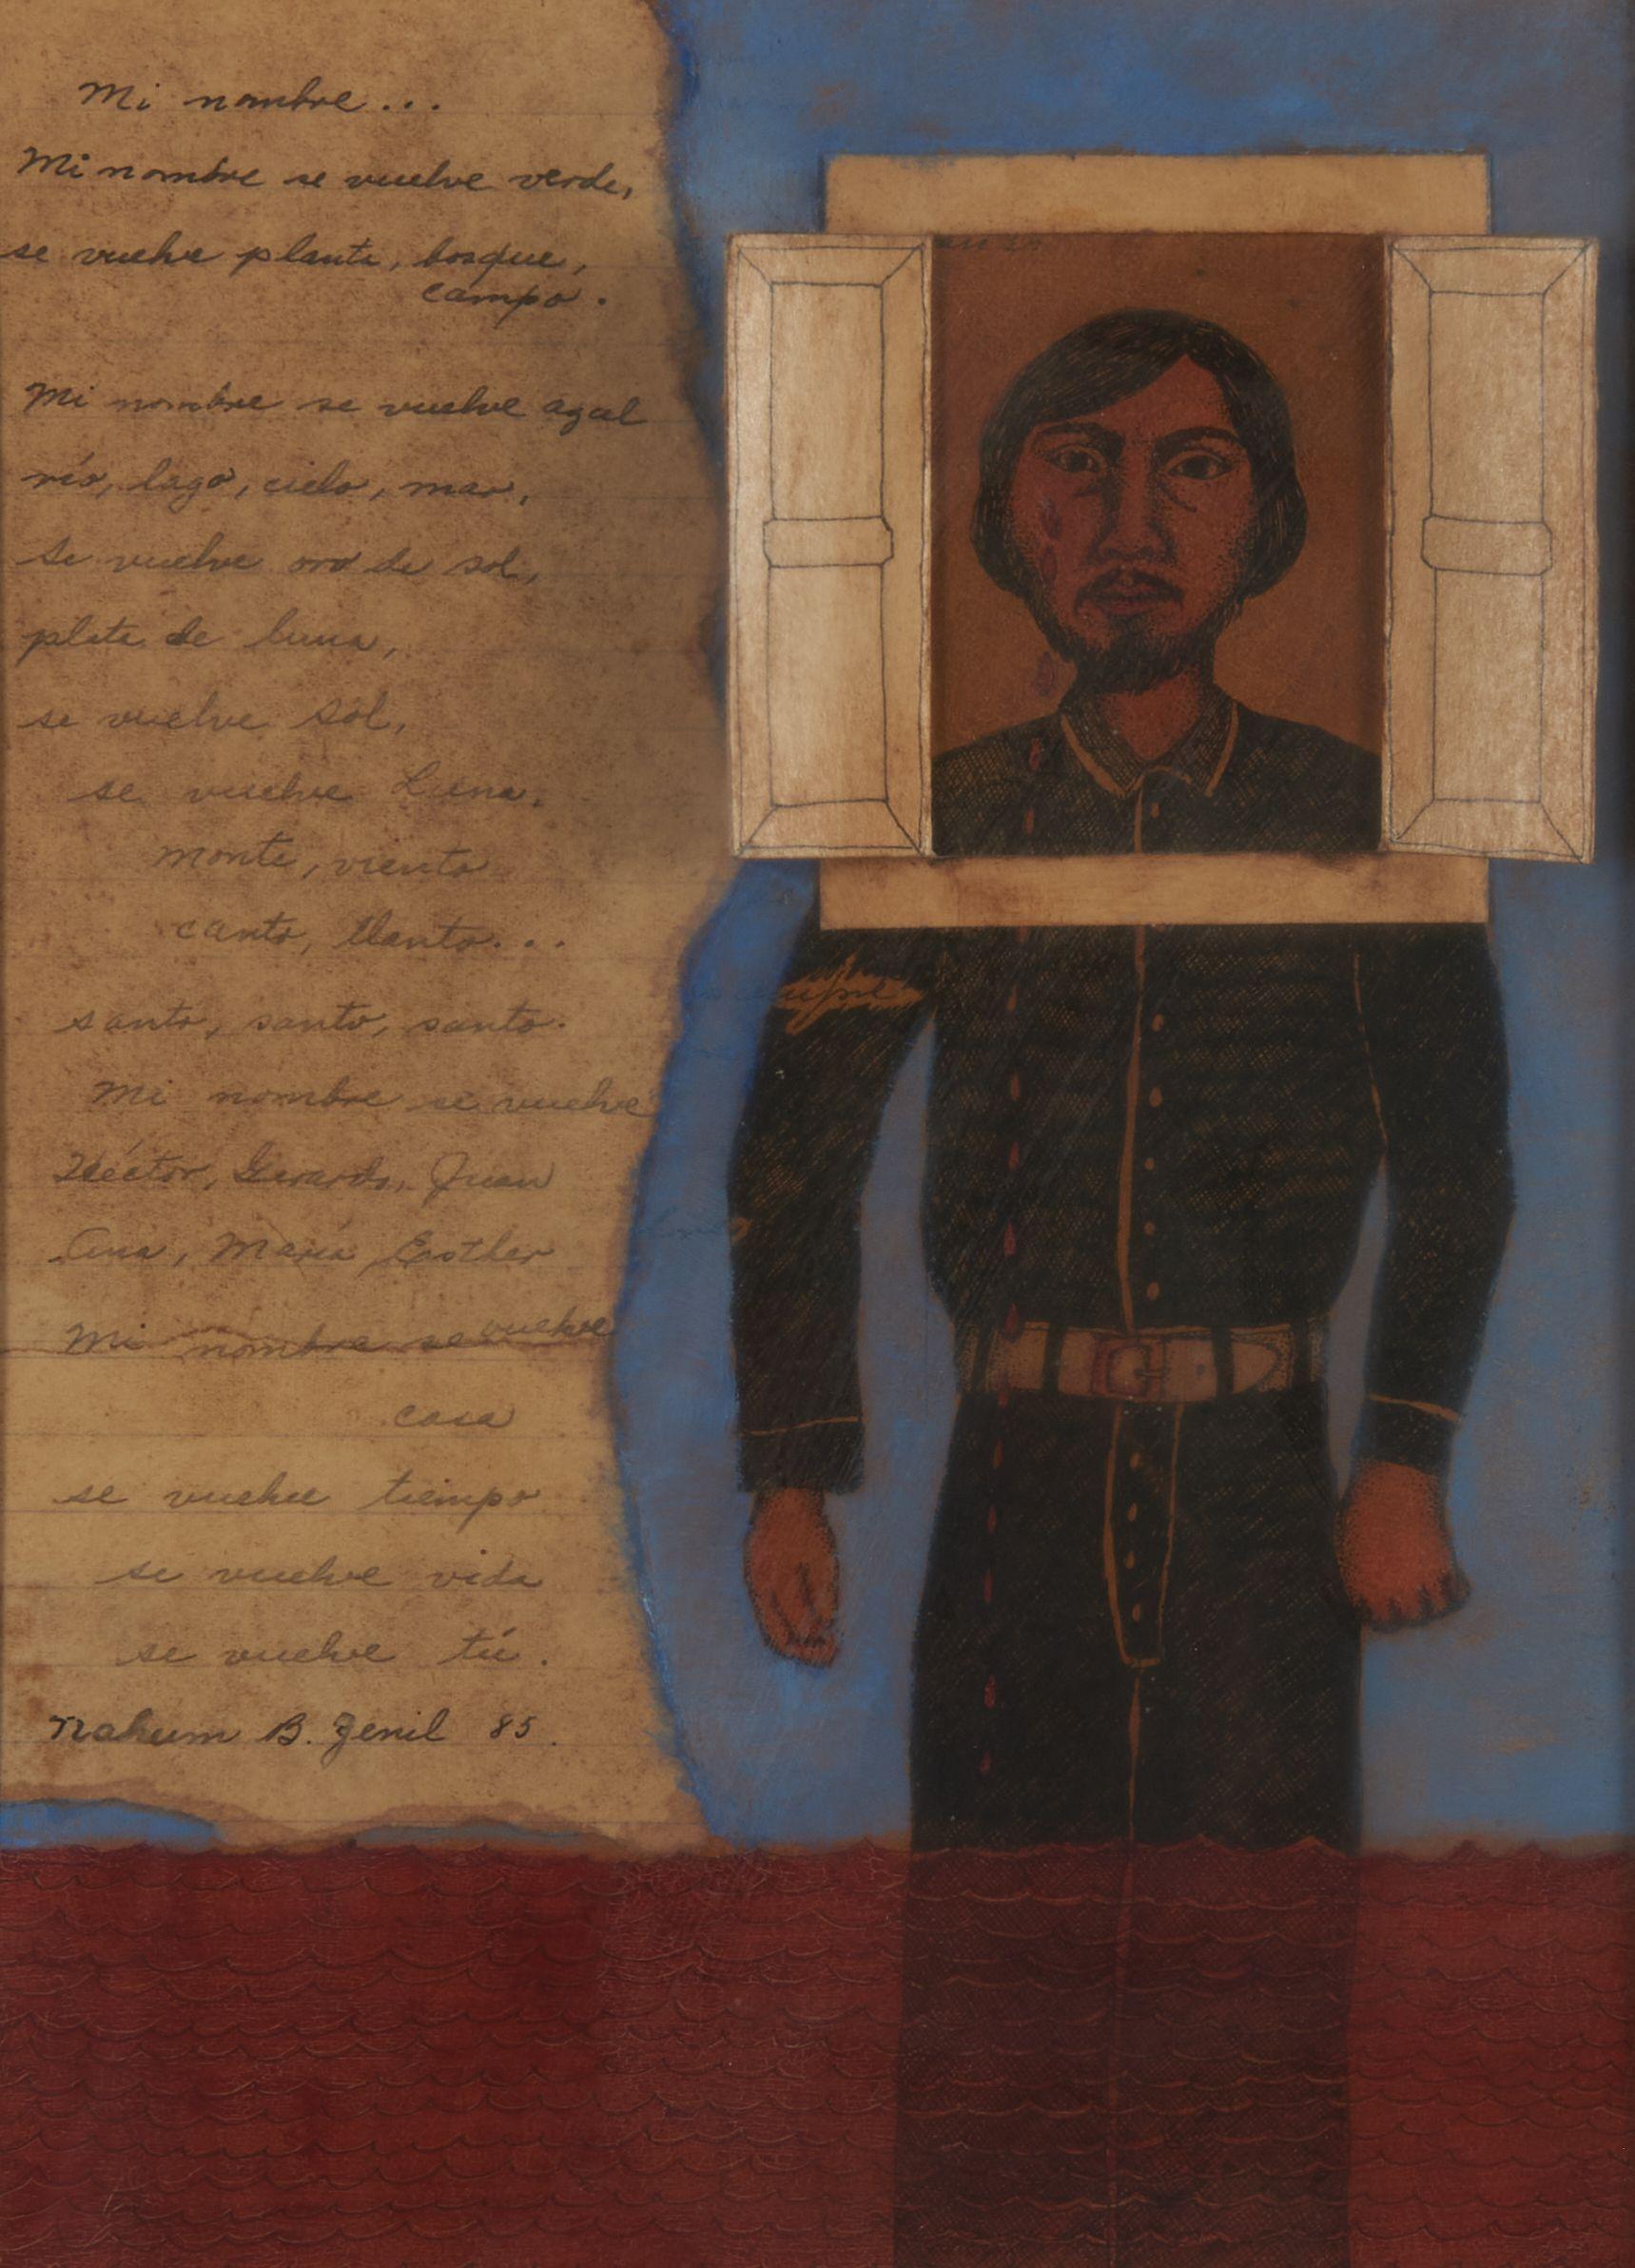 Mi nombre...
Mi nombre se vuelve verde,
se vuelve planta, bosque,
campo.
Mi nombre se vuelve azul
río, lago, cielo, mar,
se vuelve oro de sol,
plata de luna,
se vuelve sol,
se vuelve Luna,
monte, viento
canto, llanto...
santo, santo, santo.
Mi nombre se vuelve
Héctor, Gerardo, Juan
Ana, María Esther
Mi nombre se vuelve
casa
se vuelve tiempo
se vuelve vida
se vuelve tú.
Nahum B. Zenil 85.